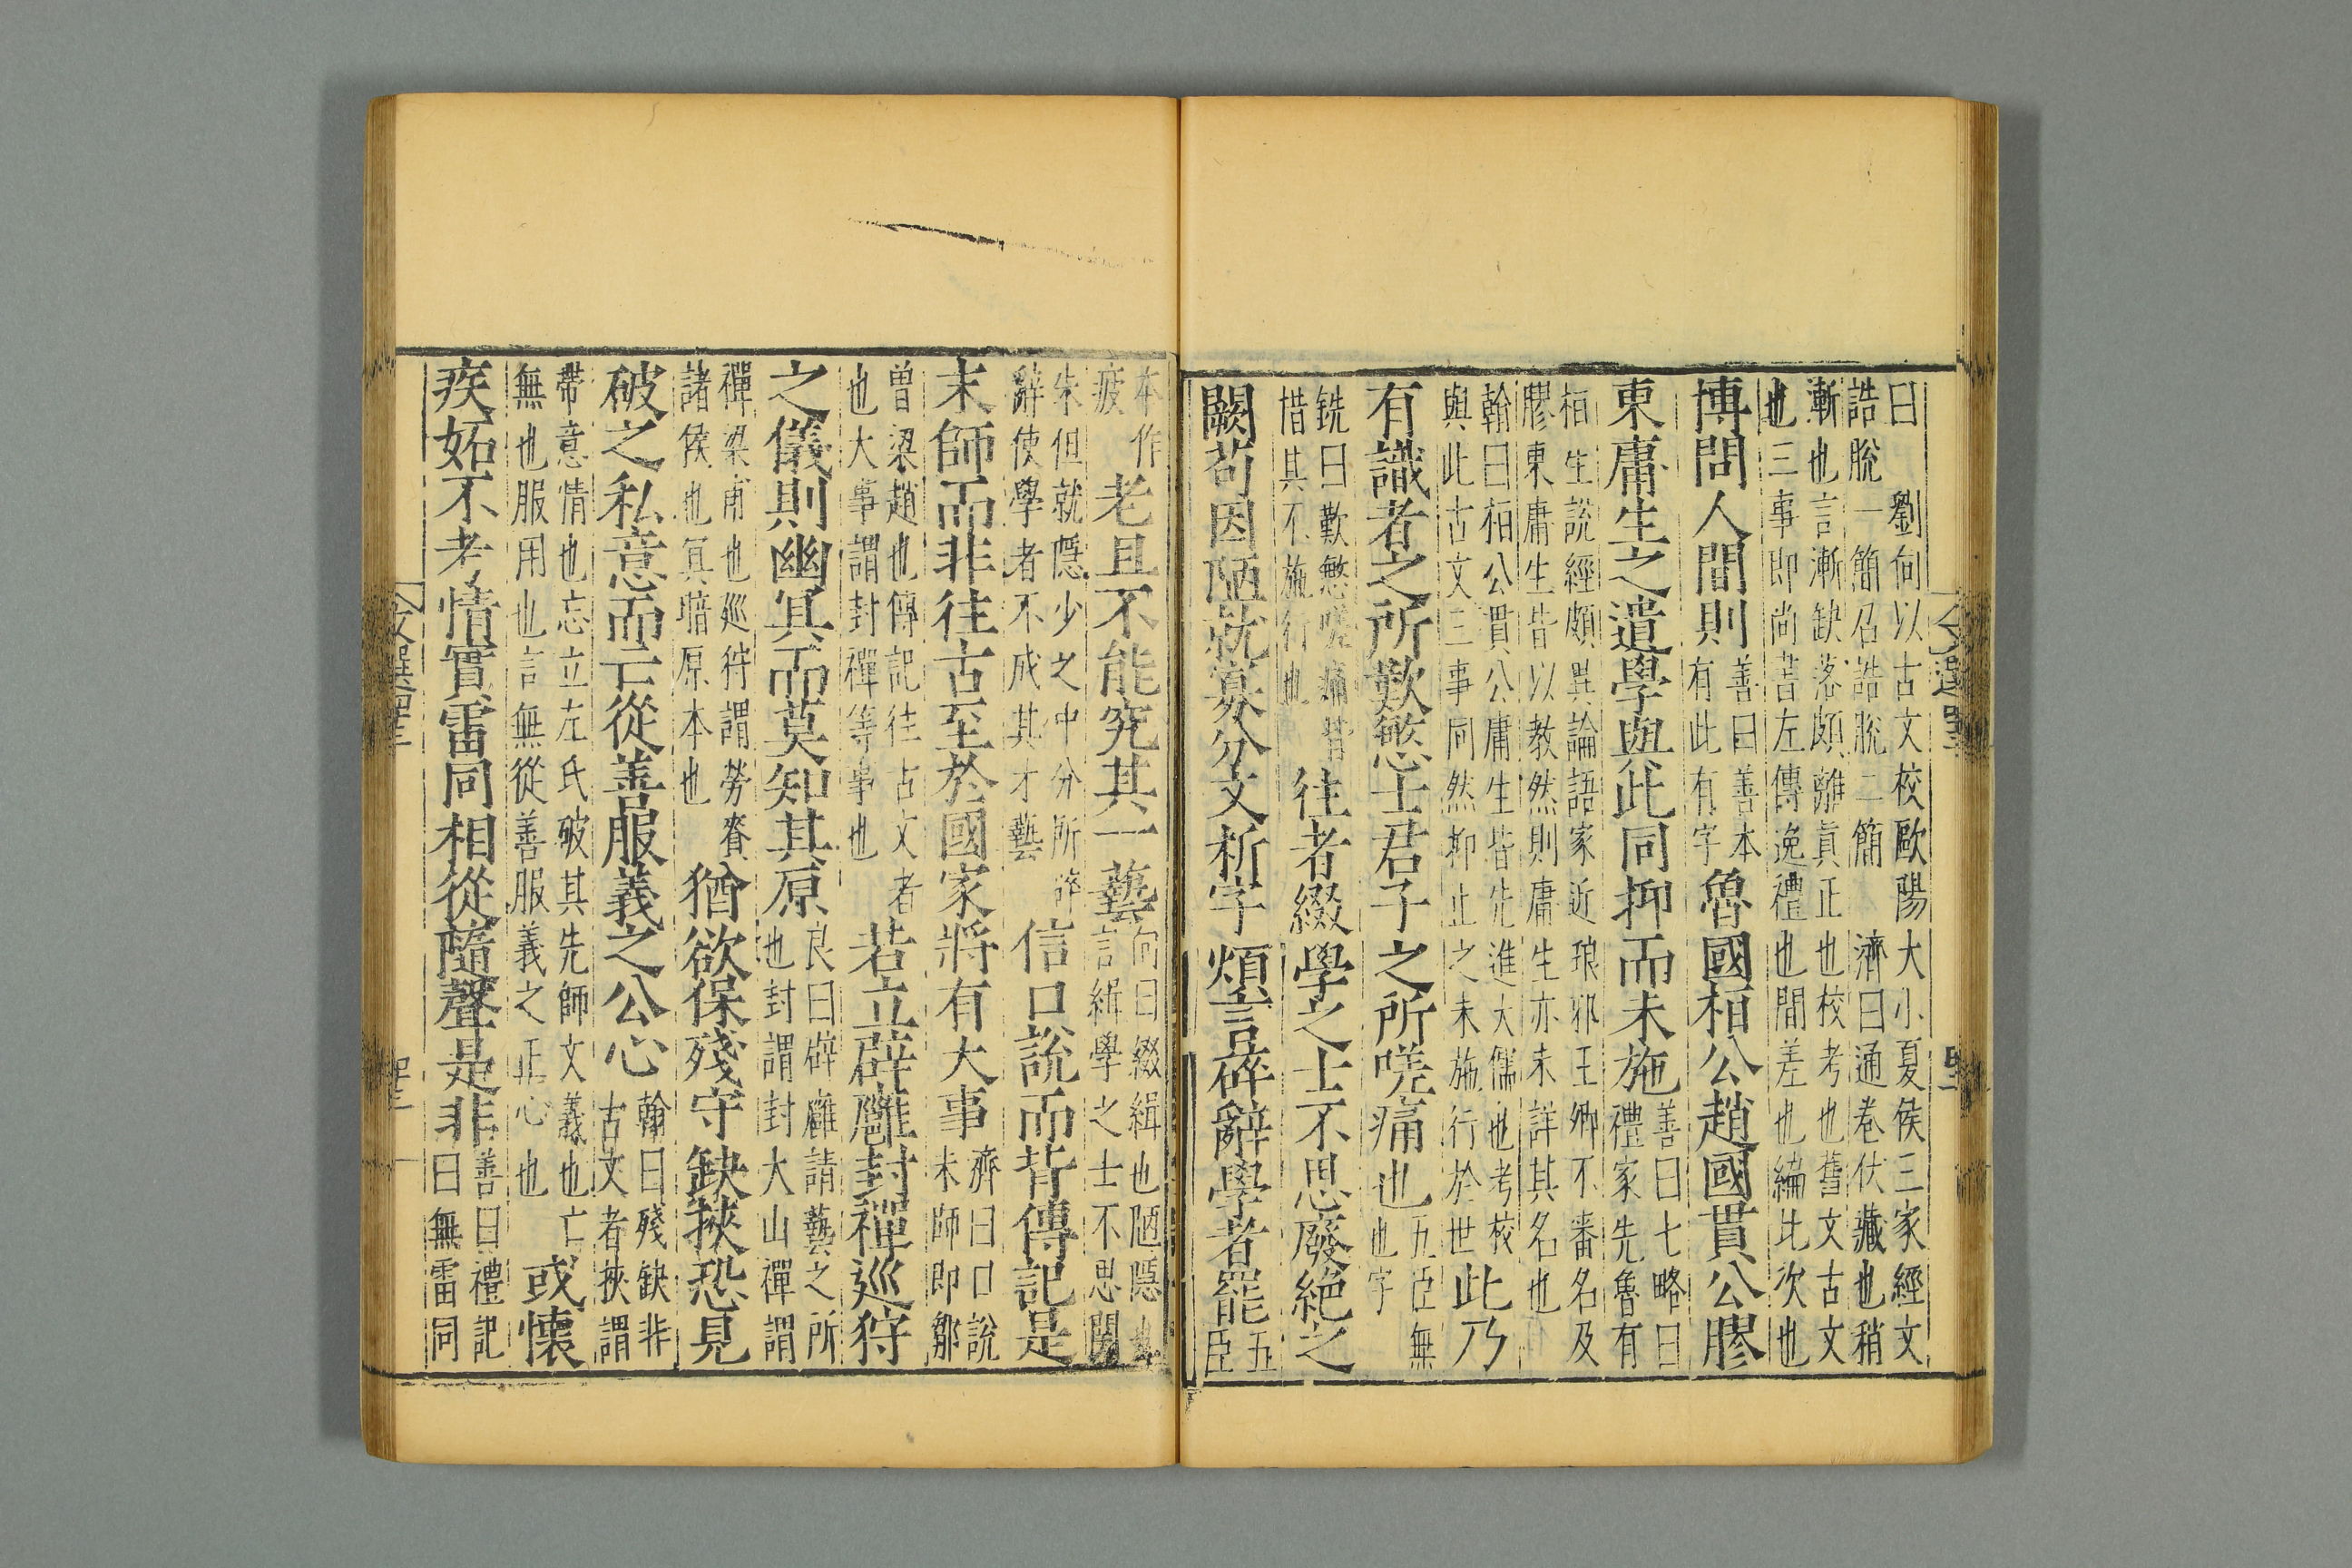 曰　劉向以古文校歐陽大小夏侯三家經文
誥脫一簡召誥脫二簡　濟曰通卷伏藏也稍
漸也言漸缺落頗離真正也校考也舊文古文
也三事即尚書左傳逸禮也間差也編比次也
博問人間則
善曰善本
有此有字
魯國栢公趙國貫公膠
東庸生之遺學與此同抑而未施
善曰七略曰
禮家先魯有
栢生說經頗異論語家近琅邪王卿不審名及
膠東庸生皆以教然則庸生亦未詳其名也
翰曰栢公貫公庸生皆先進大儒也考校
與此古文三事同然抑止之未施行於世
此乃
有識者之所歎慜士君子之所嗟痛也
五臣無
也字
銑曰歎慜嗟痛皆
惜其不施行也
往者綴學之士不思廢絕之
闕苟因陋就寡分文析字煩言碎辭學者罷
五
臣
本作
疲
老且不能究其一藝
向曰綴緝也陋隱也
言緝學之士不思闕
失但就隱少之中分所碎
辭使學者不成其才藝
信口說而背傳記是
末師而非往古至於國家將有大事
濟曰口說
末師即鄒
曾梁趙也傳記往古文者
也大事謂封禪等事也
若立辟雝封禪巡狩
之儀則幽冥而莫知其原
良曰辟雝請藝之所
也封謂封大山禪謂
禪梁甫也巡狩謂勞賚
諸侯也冥暗原本也
猶欲保殘守缺挾恐見
破之私意而云從善服義之公心
翰曰殘缺非
古文者挾謂
帶意情也忘立左氏破其先師文義也亡
無也服用也言無從善服義之正心也
或懷
疾妬不考情實雷同相從隨聲是非
善曰禮記
曰無雷同